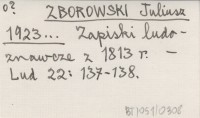 o?
ZBOROWSKI Juliusz
1923... Zapiski ludo-
znawcze z 1813 r. –
Lud 22: 137-138.